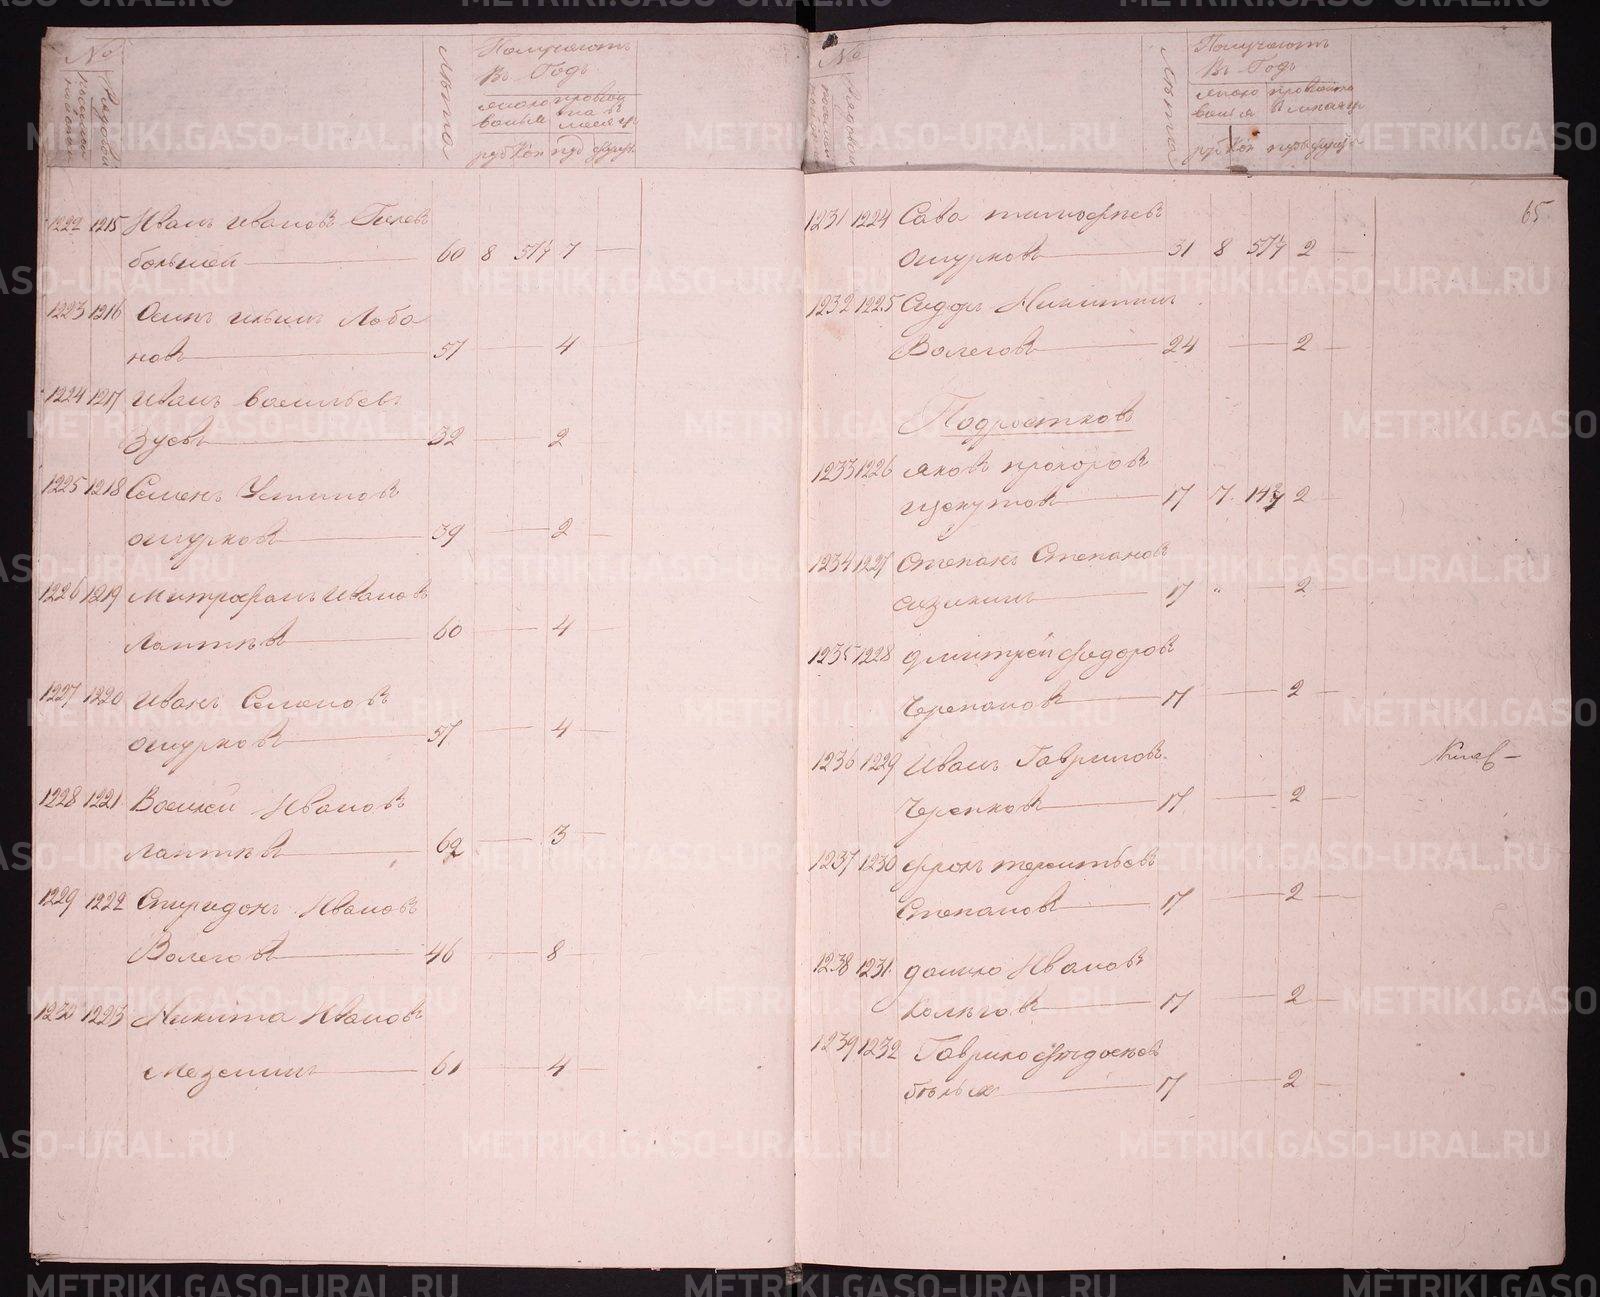 №
Лѣта
Получаютъ
Въ Годъ
жало провіян
ванья та в
месяцъ
руб коп пуд фунт
1222 1215 Иванъ Ивановъ Перев
большей 60 8 57 1/7 7
1223 1216 Осипъ Ильинъ Лоба
новъ 57 4
1224 1217 Иванъ Васильевъ
Зуевъ 32 2
1225 1218 Семенъ Устиновъ
ошурковъ 39 2
1226 1219 Митрофанъ Ивановъ
Лаптевъ 60 4
1227 1220 Иванъ Семеновъ
ошурковъ 57 4
1228 1221 Василей Ивановъ
лаптевъ 62 3
1229 1222 Спиридонъ Ивановъ
Волеговъ 46 8
1230 1223 Никита Ивановъ
Мезенинъ 61 4
№
Лѣта
Получаютъ
Въ Годъ
жало провіянта
ванья в месяцъ
руб коп пуд фунт
65
1231 1224 Сава тимофеевъ
ошурковъ 31 8 57 1/7 2
1232 1225 Сидоръ Никитинъ
Волеговъ 24 2
Подростковъ
1233 1226 яковъ прохоровъ
щекутовъ 17 7 14 2
1234 1227 Степанъ Степановъ
сизикинъ 17 " 2
1235 1228 дмитрей федоровъ
Черепановъ 17 2
1236 1229 Иванъ Гавриловъ
Черепковъ 17 2
1237 1230 фролъ терентьевъ
Степановъ 17 2
1238 1231 данило Ивановъ
17 2
1239 1232 Гаврило федосеевъ
белых 17 2